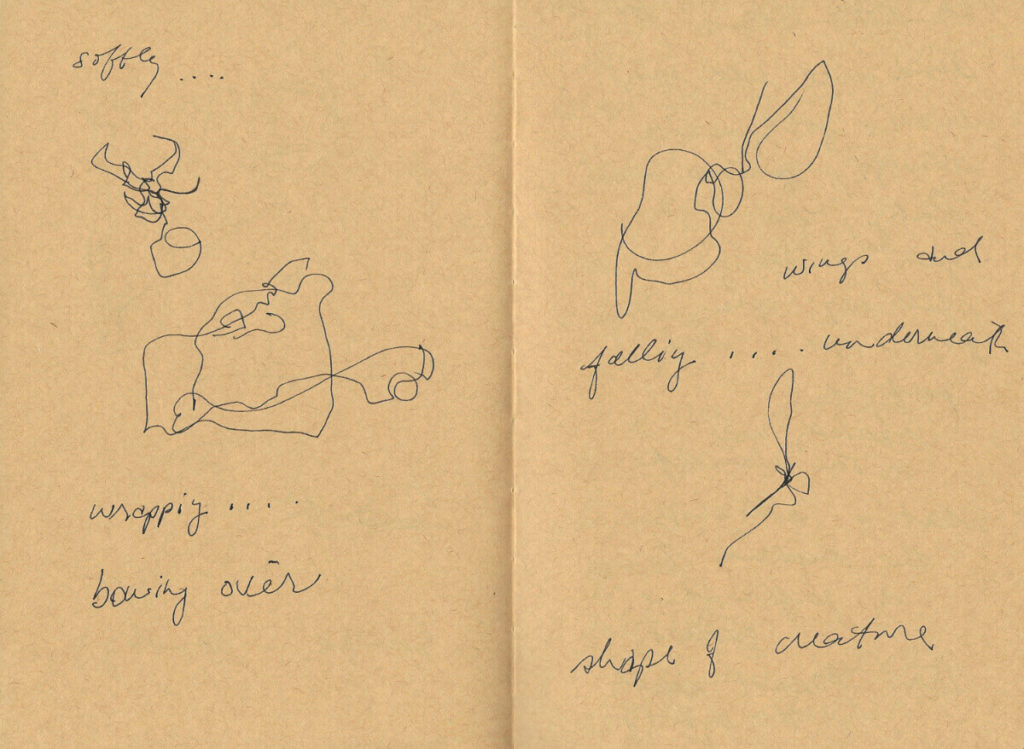 softly ....
wrapping ....
bowing over
wings and
falling .... underneath
shape of creature